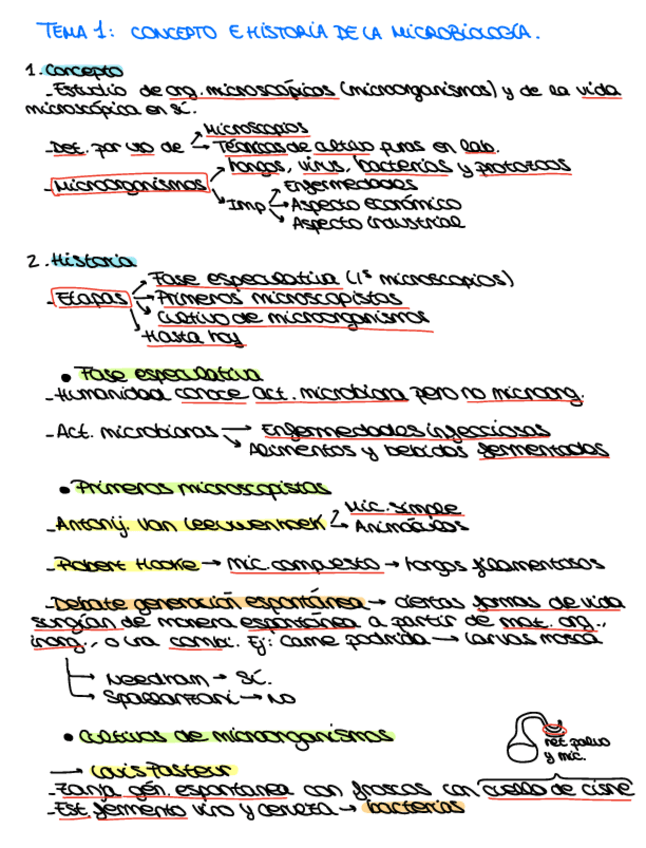 TEMA 1: CONCEPTO E HISTORIA DE LA MICROBIOLOGÍA.
1. Concepto
- Estudio de org. microscópicos (microorganismos) y de la vida
microscópica en sí.
Microscopios
- Det. por uso de → Técnicas de cultivo puras en lab.
Hongos, virus, bacterias y protozoos
- Microorganismos
Enfermedades
Imp → Aspecto económico
Aspecto industrial
2. Historia
Fase especulativa (1ºs microscopios)
- Etapas → Primeros microscopistas
Cultivo de microorganismos
Hasta hoy
• Fase especulativa
- Humanidad conoce act. microbiana pero no microorg.
- Act. microbianas → Enfermedades infecciosas
Alimentos y bebidas fermentados
• Primeros microscopistas
Mic. simple
- Antonij. Van Leeuwenhoek → Animáculos
- Robert Hooke → Mic. compuesto → Hongos filamentosos
- Debate generación espontánea → ciertas formas de vida
surgían de manera espontánea a partir de mat. org.,
inorg., o una comb. Ej: Carne podrida → Larvas mosca
→ Needham → Sí.
→ Spallanzani → No
• Cultivos de microorganismos
ret. polvo
y mic.
→ Louis Pasteur
- Zanja gén. espontanea con frascos con cuello de cisne
- Est. fermento vino y cerveza → bacterias